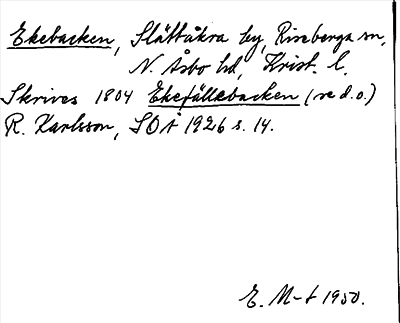 Ekebacken, Slättåkra by, Riseberga sn,
N. Åsbo hd, Krist. l.
Skrives 1804 Ekefällebacken (se d.o.)
R. Karlsson, SOÅ 1926 s. 14.
E. M-t 1950.